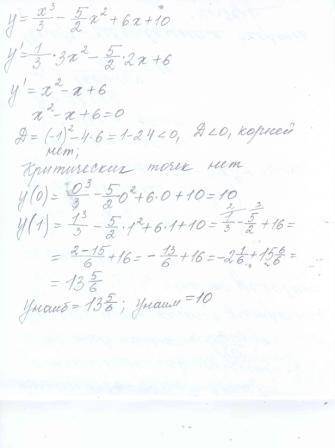 y = x³/3 - 5/2 x² + 6x + 10
y' = 1/3 · 3x² - 5/2 · 2x + 6
y' = x² - x + 6
x² - x + 6 = 0
D = (-1)² - 4·6 = 1 - 24 < 0, D < 0, корней
нет;
Критических точек нет
y(0) = 0³/3 - 5/2 0² + 6·0 + 10 = 10
y(1) = 1³/3 - 5/2 · 1² + 6·1 + 10 = 1/3 - 5/2 + 16 =
= 2-15/6 + 16 = - 13/6 + 16 = -2 1/6 + 15 6/6 =
= 13 5/6
yнаиб = 13 5/6; yнаим = 10